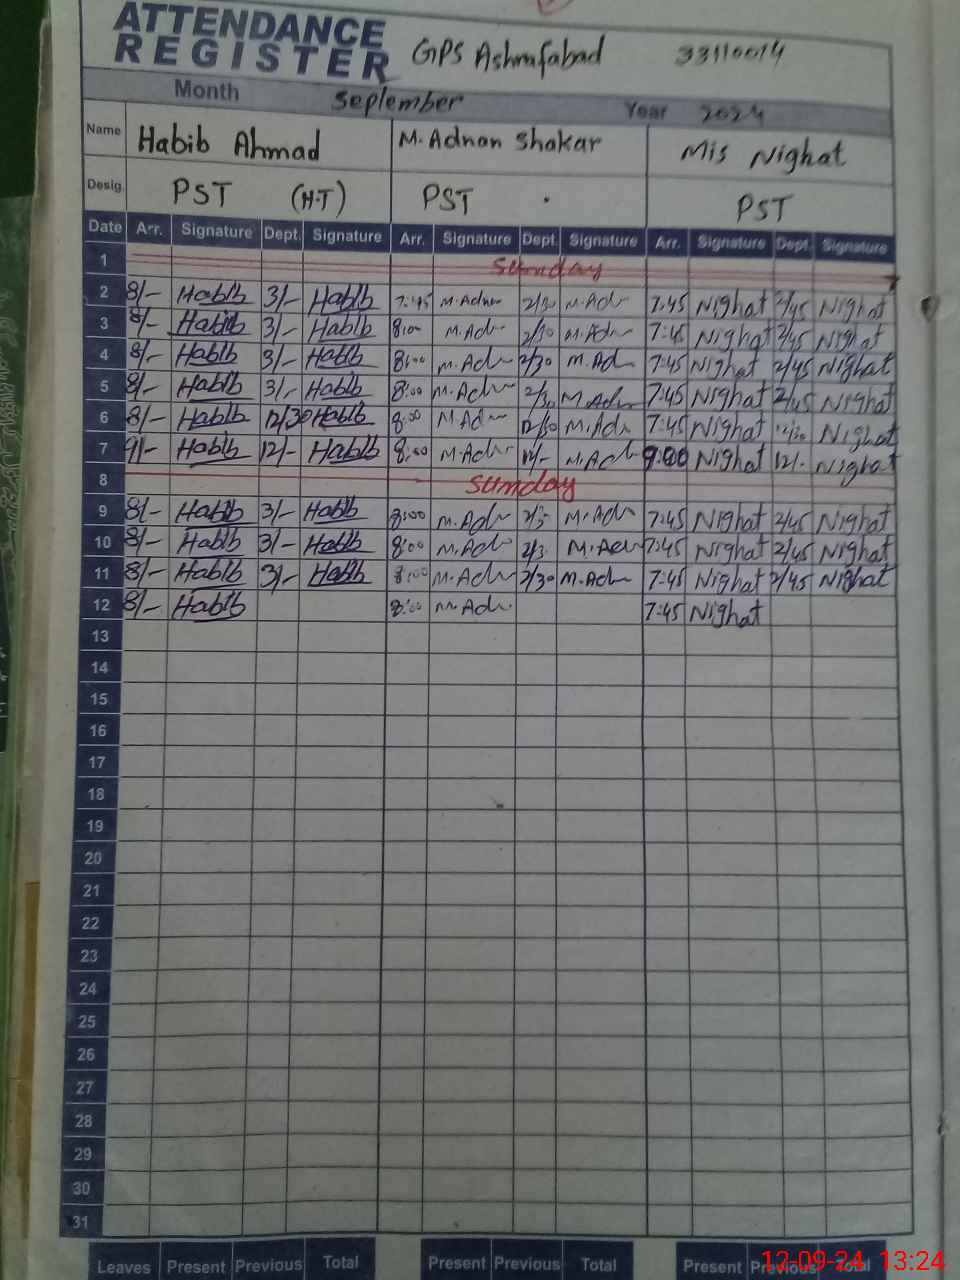 ATTENDANCE
REGISTER GPS Ashrafabad 33110014
Month September Year 2024
Name Habib Ahmad M. Adnan Shakar Mis Nighat
Desig. PST (H.T) PST PST
Date Arr. Signature Dept. Signature Arr. Signature Dept. Signature Arr. Signature Dept. Signature
1 Sunday
2 8/- Habib 3/- Habib 7:45 M.Adnan 2/30 M.Adn 7:45 Nighat 2/45 Nighat
3 8/- Habib 3/- Habib 8:00 M.Adn 2/30 M.Adn 7:45 Nighat 2/45 Nighat
4 8/- Habib 3/- Habib 8:00 M.Adn 2/30 M.Ad 7:45 Nighat 2/45 Nighat
5 8/- Habib 3/- Habib 8:00 M.Adn 2/30 M.Adn 7:45 Nighat 2/45 Nighat
6 8/- Habib 12/30 Habib 8:00 M.Adn 12/30 M.Adn 7:45 Nighat 12/30 Nighat
7 9/- Habib 12/- Habib 8:00 M.Adn 12/- M.Adn 9:00 Nighat 12/- Nighat
8 Sunday
9 8/- Habib 3/- Habib 8:00 M.Adn M.Adn 7:45 Nighat 2/45 Nighat
10 8/- Habib 3/- Habib 8:00 M.Adn M.Adn 7:45 Nighat 2/45 Nighat
11 8/- Habib 3/- Habib 8:00 M.Adn 2/30 M.Adn 7:45 Nighat 2/45 Nighat
12 8/- Habib 8:00 M.Adn 7:45 Nighat
13
14
15
16
17
18
19
20
21
22
23
24
25
26
27
28
29
30
31
Leaves Present Previous Total Present Previous Total Present Previous Total
12-09-24 13:24